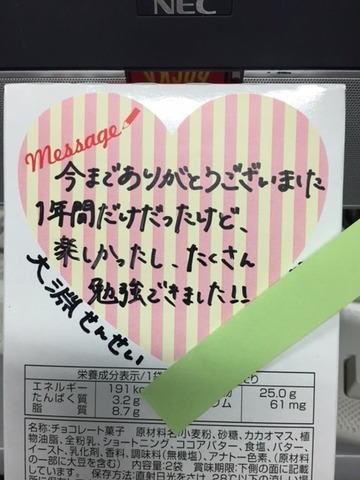 NEC
Message
今までありがとうございました
1年間だけだったけど、
楽しかったし、たくさん
勉強できました!!
大渕せんせい
栄養成分表示/1袋
エネルギー 191kc
たんぱく質 3.2g
脂質 8.7g
25.0g
ウム 61mg
名称:チョコレート菓子 原材料名:小麦粉、砂糖、カカオマス、植
物油脂、全粉乳、ショートニング、ココアバター、食塩、バター、
イースト、乳化剤、香料、調味料(無機塩)、アナトー色素、(原材料の
一部に大豆を含む) 内容量:2袋 賞味期限:下側の面に記載
しています。 保存方法:直射日光をさけ、28℃以下の涼しい場